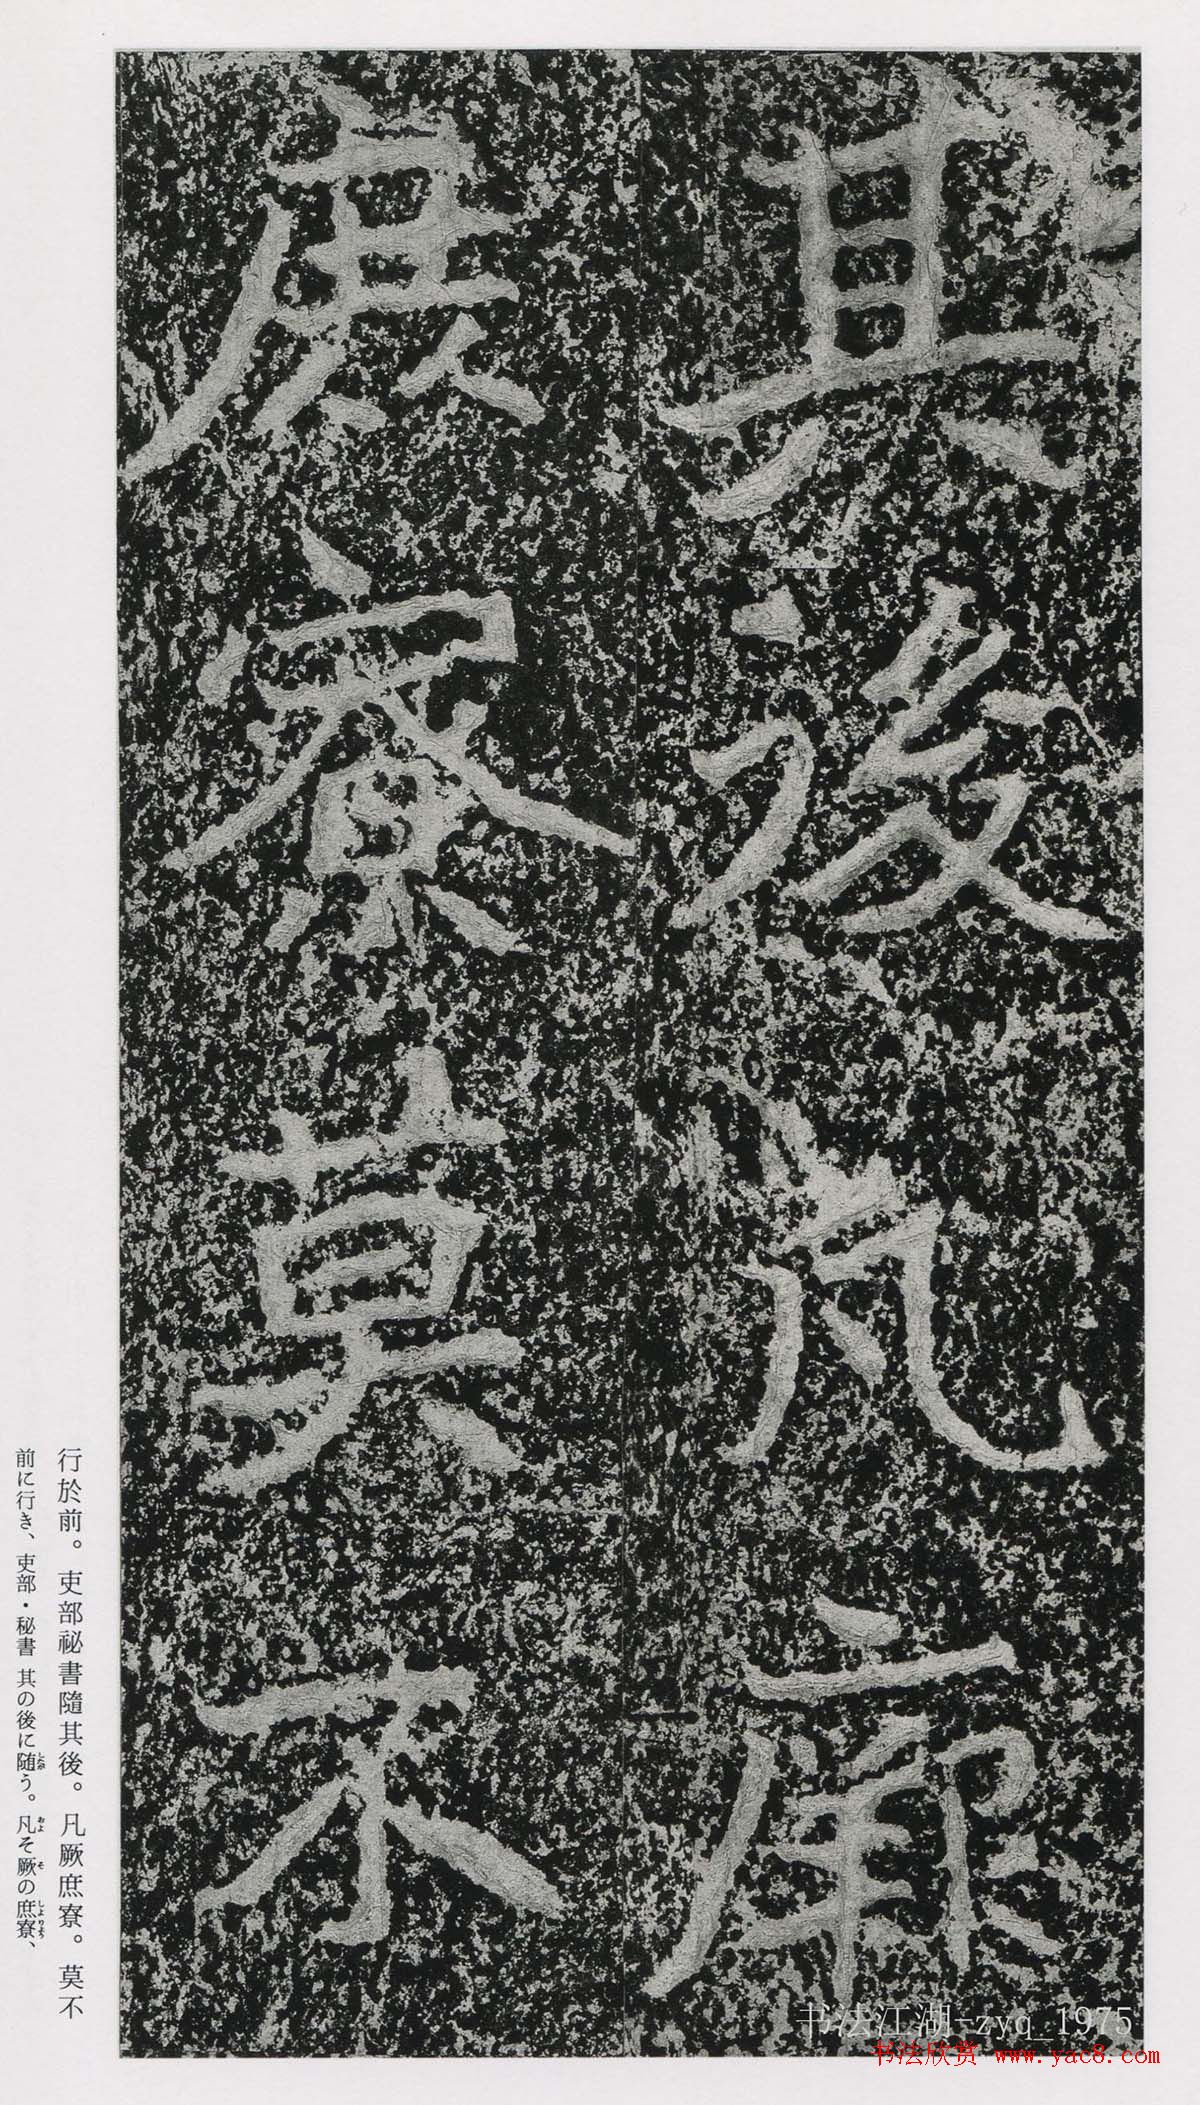 其後凡厥
庶寮莫不
行於前。吏部祕書隨其後。凡厥庶寮。莫不
前に行き、吏部・秘書 其の後に随う。凡そ厥の庶寮、
书法江湖-zyq_1975
书法欣赏 www.yac8.com